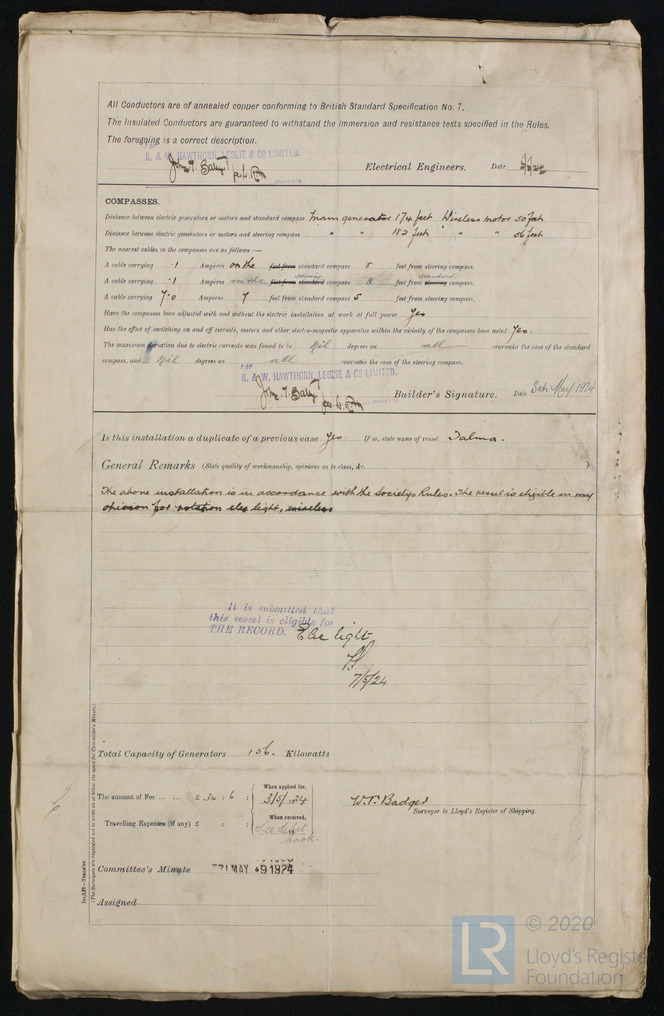 All Conductors are of annealed copper conforming to British Standard Specification No. 7.
The Insulated Conductors are guaranteed to withstand the immersion and resistance tests specified in the Rules.
The foregoing is a correct description.
FOR
R. & W. HAWTHORN, LESLIE & CO. LIMITED.
Electrical Engineers. Date
COMPASSES.
Distance between electric generators or motors and standard compass Main generator 174 feet Wireless motor 50 feet
Distance between electric generators or motors and steering compass " " 182 feet " " 56 feet
The nearest cables to the compasses are as follows:—
A cable carrying .1 Ampères on the feet from standard compass 8 feet from steering compass.
A cable carrying .1 Ampères on the feet from standard steering compass 8 feet from steering standard compass.
A cable carrying 7.0 Ampères 7 feet from standard compass 5 feet from steering compass.
Have the compasses been adjusted with and without the electric installation at work at full power Yes
Has the effect of switching on and off circuits, motors and other electro-magnetic apparatus within the vicinity of the compasses been noted Yes.
The maximum deviation due to electric currents was found to be Nil degrees on all course in the case of the standard
compass, and Nil degrees on all course in the case of the steering compass.
FOR
R. & W. HAWTHORN, LESLIE & CO. LIMITED.
Builder's Signature. Date 5th May 1924
Is this installation a duplicate of a previous case Yes. If so, state name of vessel Talma.
General Remarks (State quality of workmanship, opinions as to class, &c. )
The above installation is in accordance with the Societys Rules. The vessel is eligible in my
opinion for notation elec light, wireless
It is submitted that
this vessel is eligible for
THE RECORD. Elec light
7/5/24
Total Capacity of Generators 156. Kilowatts
The amount of Fee ... ... £ 34 : 6 :
When applied for,
3/5/1924
W. T. Badger
Surveyor to Lloyd's Register of Shipping.
Travelling Expenses (if any) £ : :
When received,
See debit
book.
Committee's Minute FRI MAY 9 1924
Assigned
(The Surveyors are requested not to write on or below the space for Committee's Minute.)
Transfer.
© 2020
LR
Lloyd's Register
Foundation